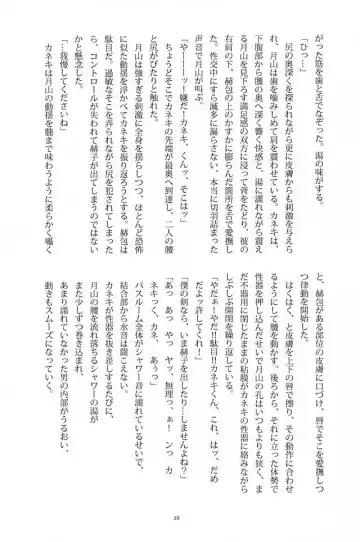 がった筋を歯と舌でなぞった。湯の味がする。
「ひっ…」
尻の奥深くを揺られながら更に皮膚からも刺激を与えら
れ、月山は歯を噛みしめて肩を震わせている。
下腹部から腰の奥へ深く響く快感と、湯に濡れながら震え
る月山を見下ろす満足感の双方に浸って背をたどり、彼の
右肩の下、赫包のまわりかすかに膨らんだ箇所を舌で愛撫し
た。性交中にすら滅多に漏らさない、本当に切羽詰まった
声音で月山が叫ぶ。
「やーーーッ！嫌だ！カネキ、くん、そこはッ」
ちょうどそこでカネキの先端が最奥へと到達し、二人の腰
と尻がぴたりと触れた。
月山は強すぎる刺激に全身を揺らしつつ、ほとんど恐怖
に似た動揺を浮かべてカネキを振り返ろうとする。
駄目だ。過敏なそこを弄られながら尻を犯されてしまった
ら、コントロールが失われて赫子が出てしまうのではない
かと懸念した。
「…我慢してくださいね」
カネキは月山の動揺を髄まで味わうように柔らかく囁く
と、赫包がある部位の皮膚に口づけ、唇でそこを愛撫しつ
つ律動を開始した。
はくはく、と皮膚を上下の唇で擦り、その動作に合わせ
るようにして腰を動かす。後ろから、それに立った体勢で
性器を押し込んだせいで月山の孔はいつもよりも狭く、ま
だ不器用に閉じたままの粘膜がカネキの性器に絡みながら
しぶしぶ開閉を繰り返している。
「やだぁーやだ！駄目!!カネキくん、これ、はッ、だめ
だよッ許してくれ！」
「僕の剣なら、いま赫子を出したり…しませんよね？」
「あっ　あっ　やっ　ヤッ、無理っ。ぁ！　ンっ　カ
ネキっく、カネ、あぅっ」
結合部から水音は聞こえない。
バスルーム全体がシャワー音に濡れているせいで、
カネキが性器を抜き差しするたびに、
月山の腰を流れ落ちるシャワーの湯が
また少しずつ巻き込まれ、
あまり濡れていなかった男の内部がうるおい、
動きもスムーズになっていく。
28